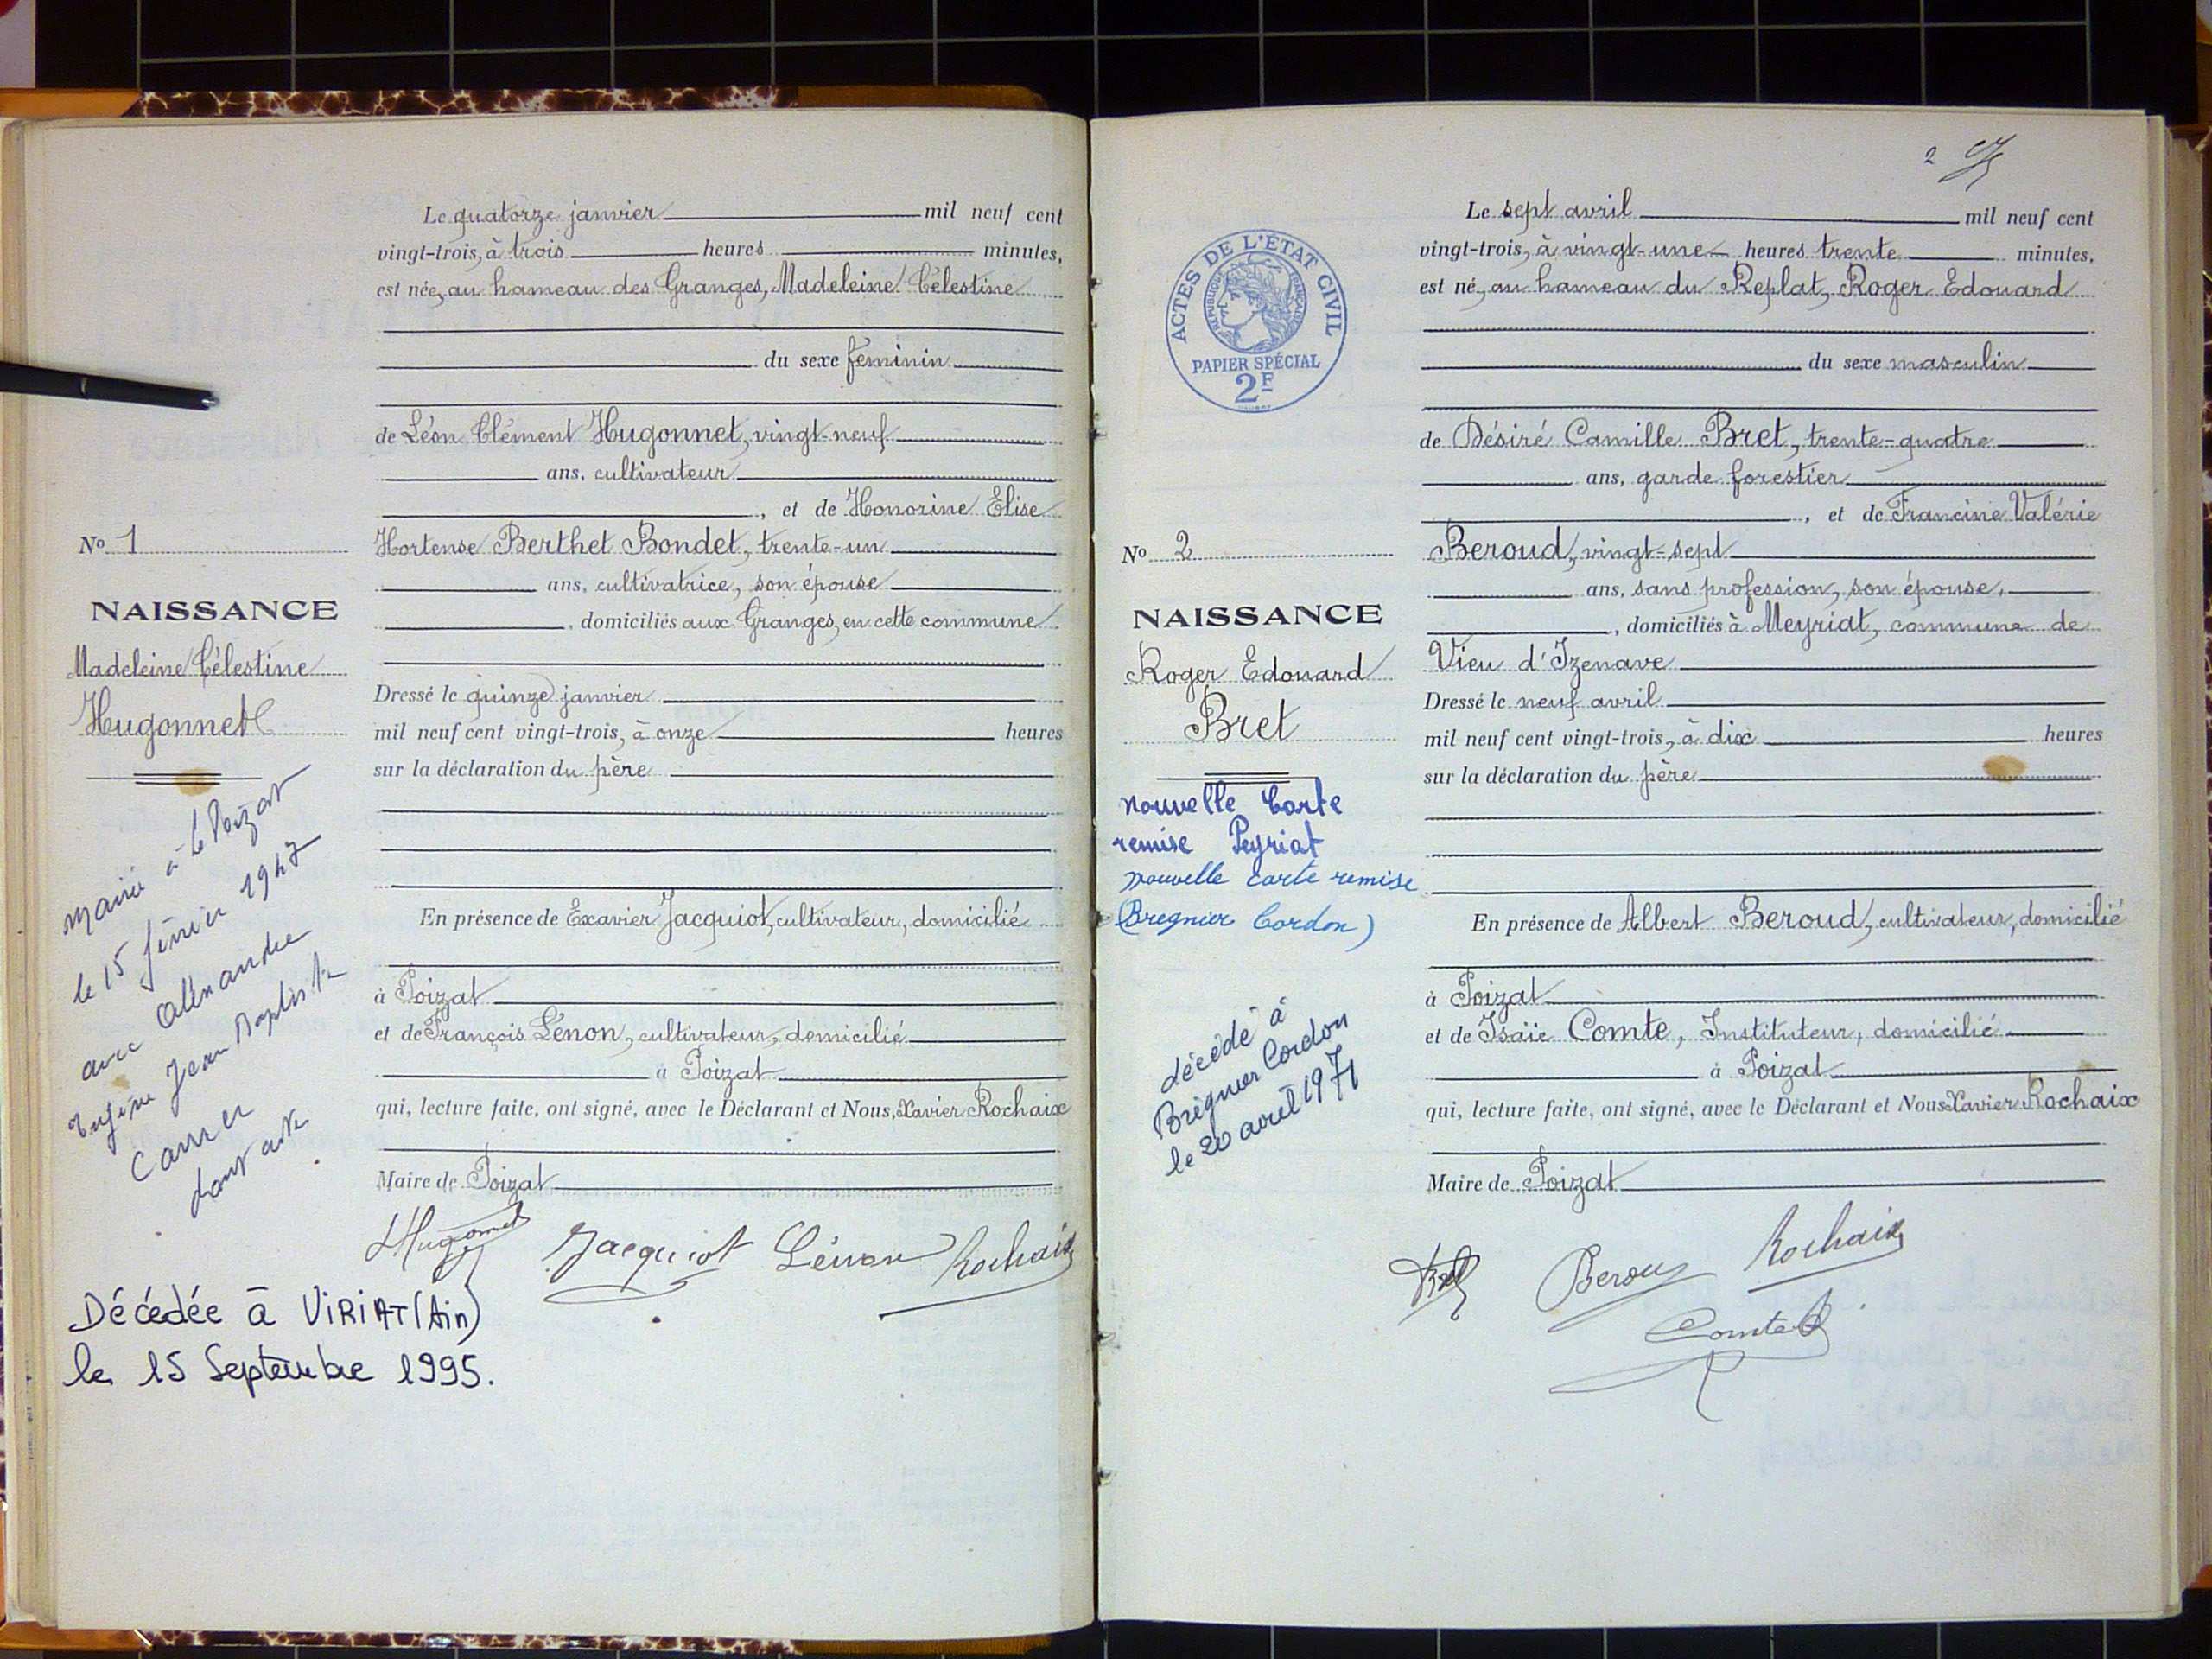 Le quatorze janvier mil neuf cent
vingt-trois, à trois heures minutes,
est née, au hameau des Granges, Madeleine Célestine
du sexe féminin
de Léon Clément Hugonnet, vingt-neuf
ans, cultivateur
, et de Honorine Elise
Hortense Berthet Bondet, trente-un
ans, cultivatrice, son épouse
, domiciliés aux Granges, en cette commune
Dressé le quinze janvier
mil neuf cent vingt-trois, à onze heures
sur la déclaration du père
En présence de Exavier Jacquiot, cultivateur, domicilié
à Poizat
et de François Lénon, cultivateur, domicilié
à Poizat
qui, lecture faite, ont signé, avec le Déclarant et Nous, Xavier Rochaix
Maire de Poizat
LHugonnet Jacquiot Lénon Rochaix
No 1
NAISSANCE
Madeleine Célestine
Hugonnet
Mariée à Le Poizat
le 15 février 1947
avec Alexandre
Eugène Jean Baptiste
Carrier
dont acte
Décédée à VIRIAT (Ain)
le 15 Septembre 1995.
2
ACTES DE L'ÉTAT CIVIL
RÉPUBLIQUE FRANÇAISE
PAPIER SPÉCIAL
2F
Le sept avril mil neuf cent
vingt-trois, à vingt-une heures trente minutes,
est né, au hameau du Replat, Roger Edouard
du sexe masculin
de Désiré Camille Bret, trente-quatre
ans, garde forestier
, et de Francine Valérie
Beroud, vingt-sept
ans, sans profession, son épouse,
, domiciliés à Meyriat, commune de
Vieu d'Izenave
Dressé le neuf avril
mil neuf cent vingt-trois, à dix heures
sur la déclaration du père
En présence de Albert Beroud, cultivateur, domicilié
à Poizat
et de Isaïe Comte, Instituteur, domicilié
à Poizat
qui, lecture faite, ont signé, avec le Déclarant et Nous Xavier Rochaix
Maire de Poizat
Bret Beroud Rochaix
Comte
No 2
NAISSANCE
Roger Edouard
Bret
nouvelle Carte
remise Peyriat
nouvelle carte remise
(Bregnier Cordon)
décédé à
Brégnier Cordon
le 20 avril 1971